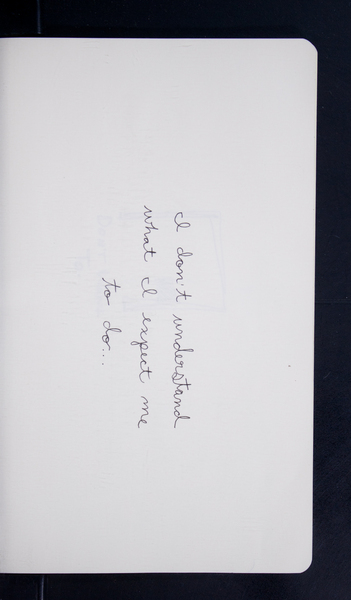 I don't understand
what I expect me
to do...